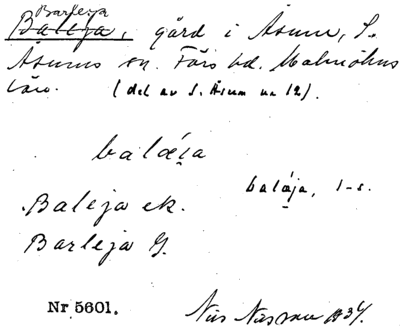 Barleja
Baleja, gård i Åsum, S.
Åsums sn. Färs hd. Malmöhus
län. (del av S. Åsum nr 12).
baläi̯a
baläja, 1-s.
Baleja ek.
Barleja G.
Nr 5601. Nils Nilsson 1934.